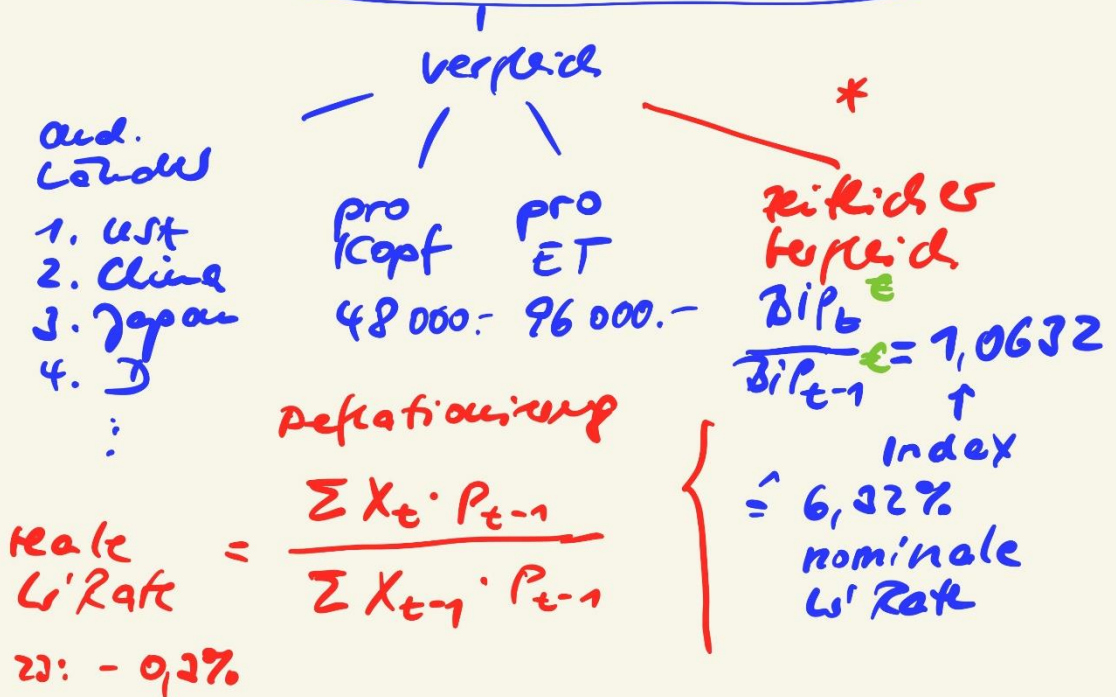 Vergleich
*
and.
Länder
1. USA
2. China
3. Japan
4. D
⋮
pro
Kopf
48 000.-
pro
ET
96 000.-
zeitlicher
Vergleich
BIP_t € / BIP_{t-1} € = 1,0632
↑
Index
≙ 6,32%
nominale
W'Rate
Deflationierung
reale
W'Rate
= Σ X_t · P_{t-1} / Σ X_{t-1} · P_{t-1}
23: - 0,3%